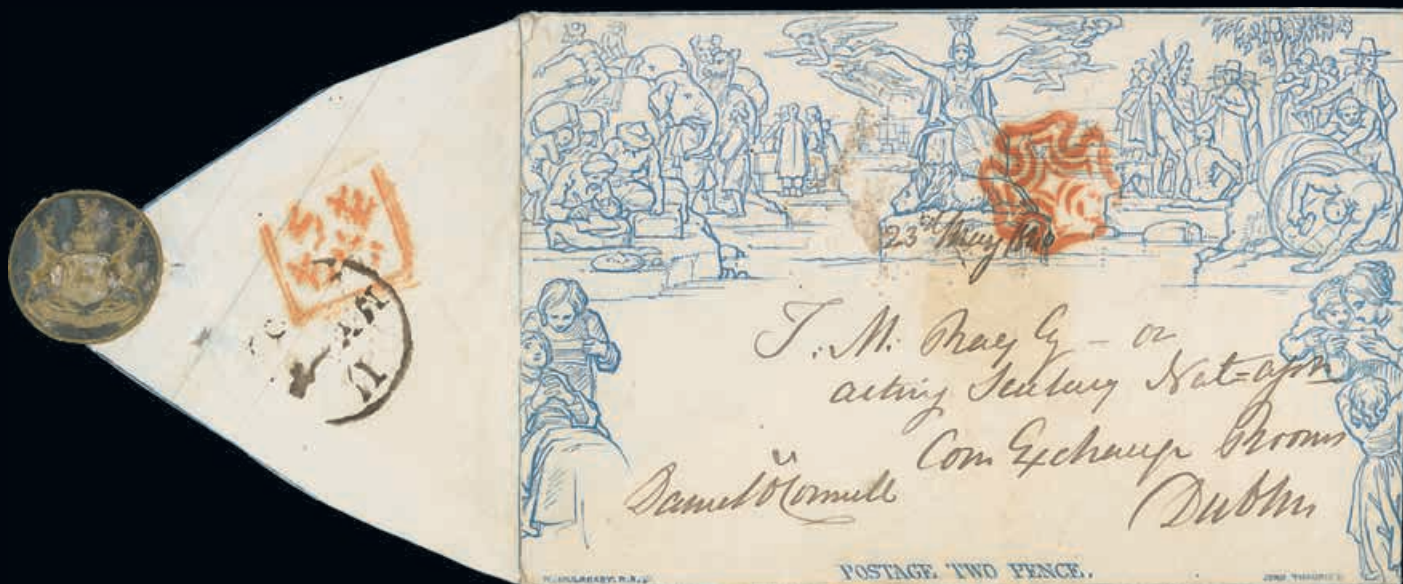 23rd May 1840
T. M. Ray Esq - or
acting Secretary Nat=assn
Corn Exchange Rooms
Dublin
Daniel O'Connell
POSTAGE TWO PENCE.
W. MULREADY. R.A.
JOHN THOMPSON